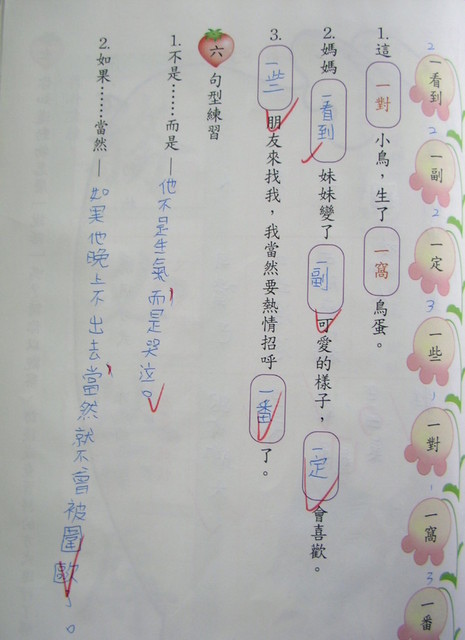 2 一看到
2 一副
2 一定
3 一些
1 一對
1 一窩
3 一番
1.這 一對 小鳥，生了 一窩 鳥蛋。
2.媽媽 一看到 妹妹變了 一副 可愛的樣子， 一定 會喜歡。
3. 一些 朋友來找我，我當然要熱情招呼 一番 了。
六 句型練習
1.不是……而是—他不是生氣，而是哭泣。
2.如果……當然—如果他晚上不出去，當然就不會被圍毆了。